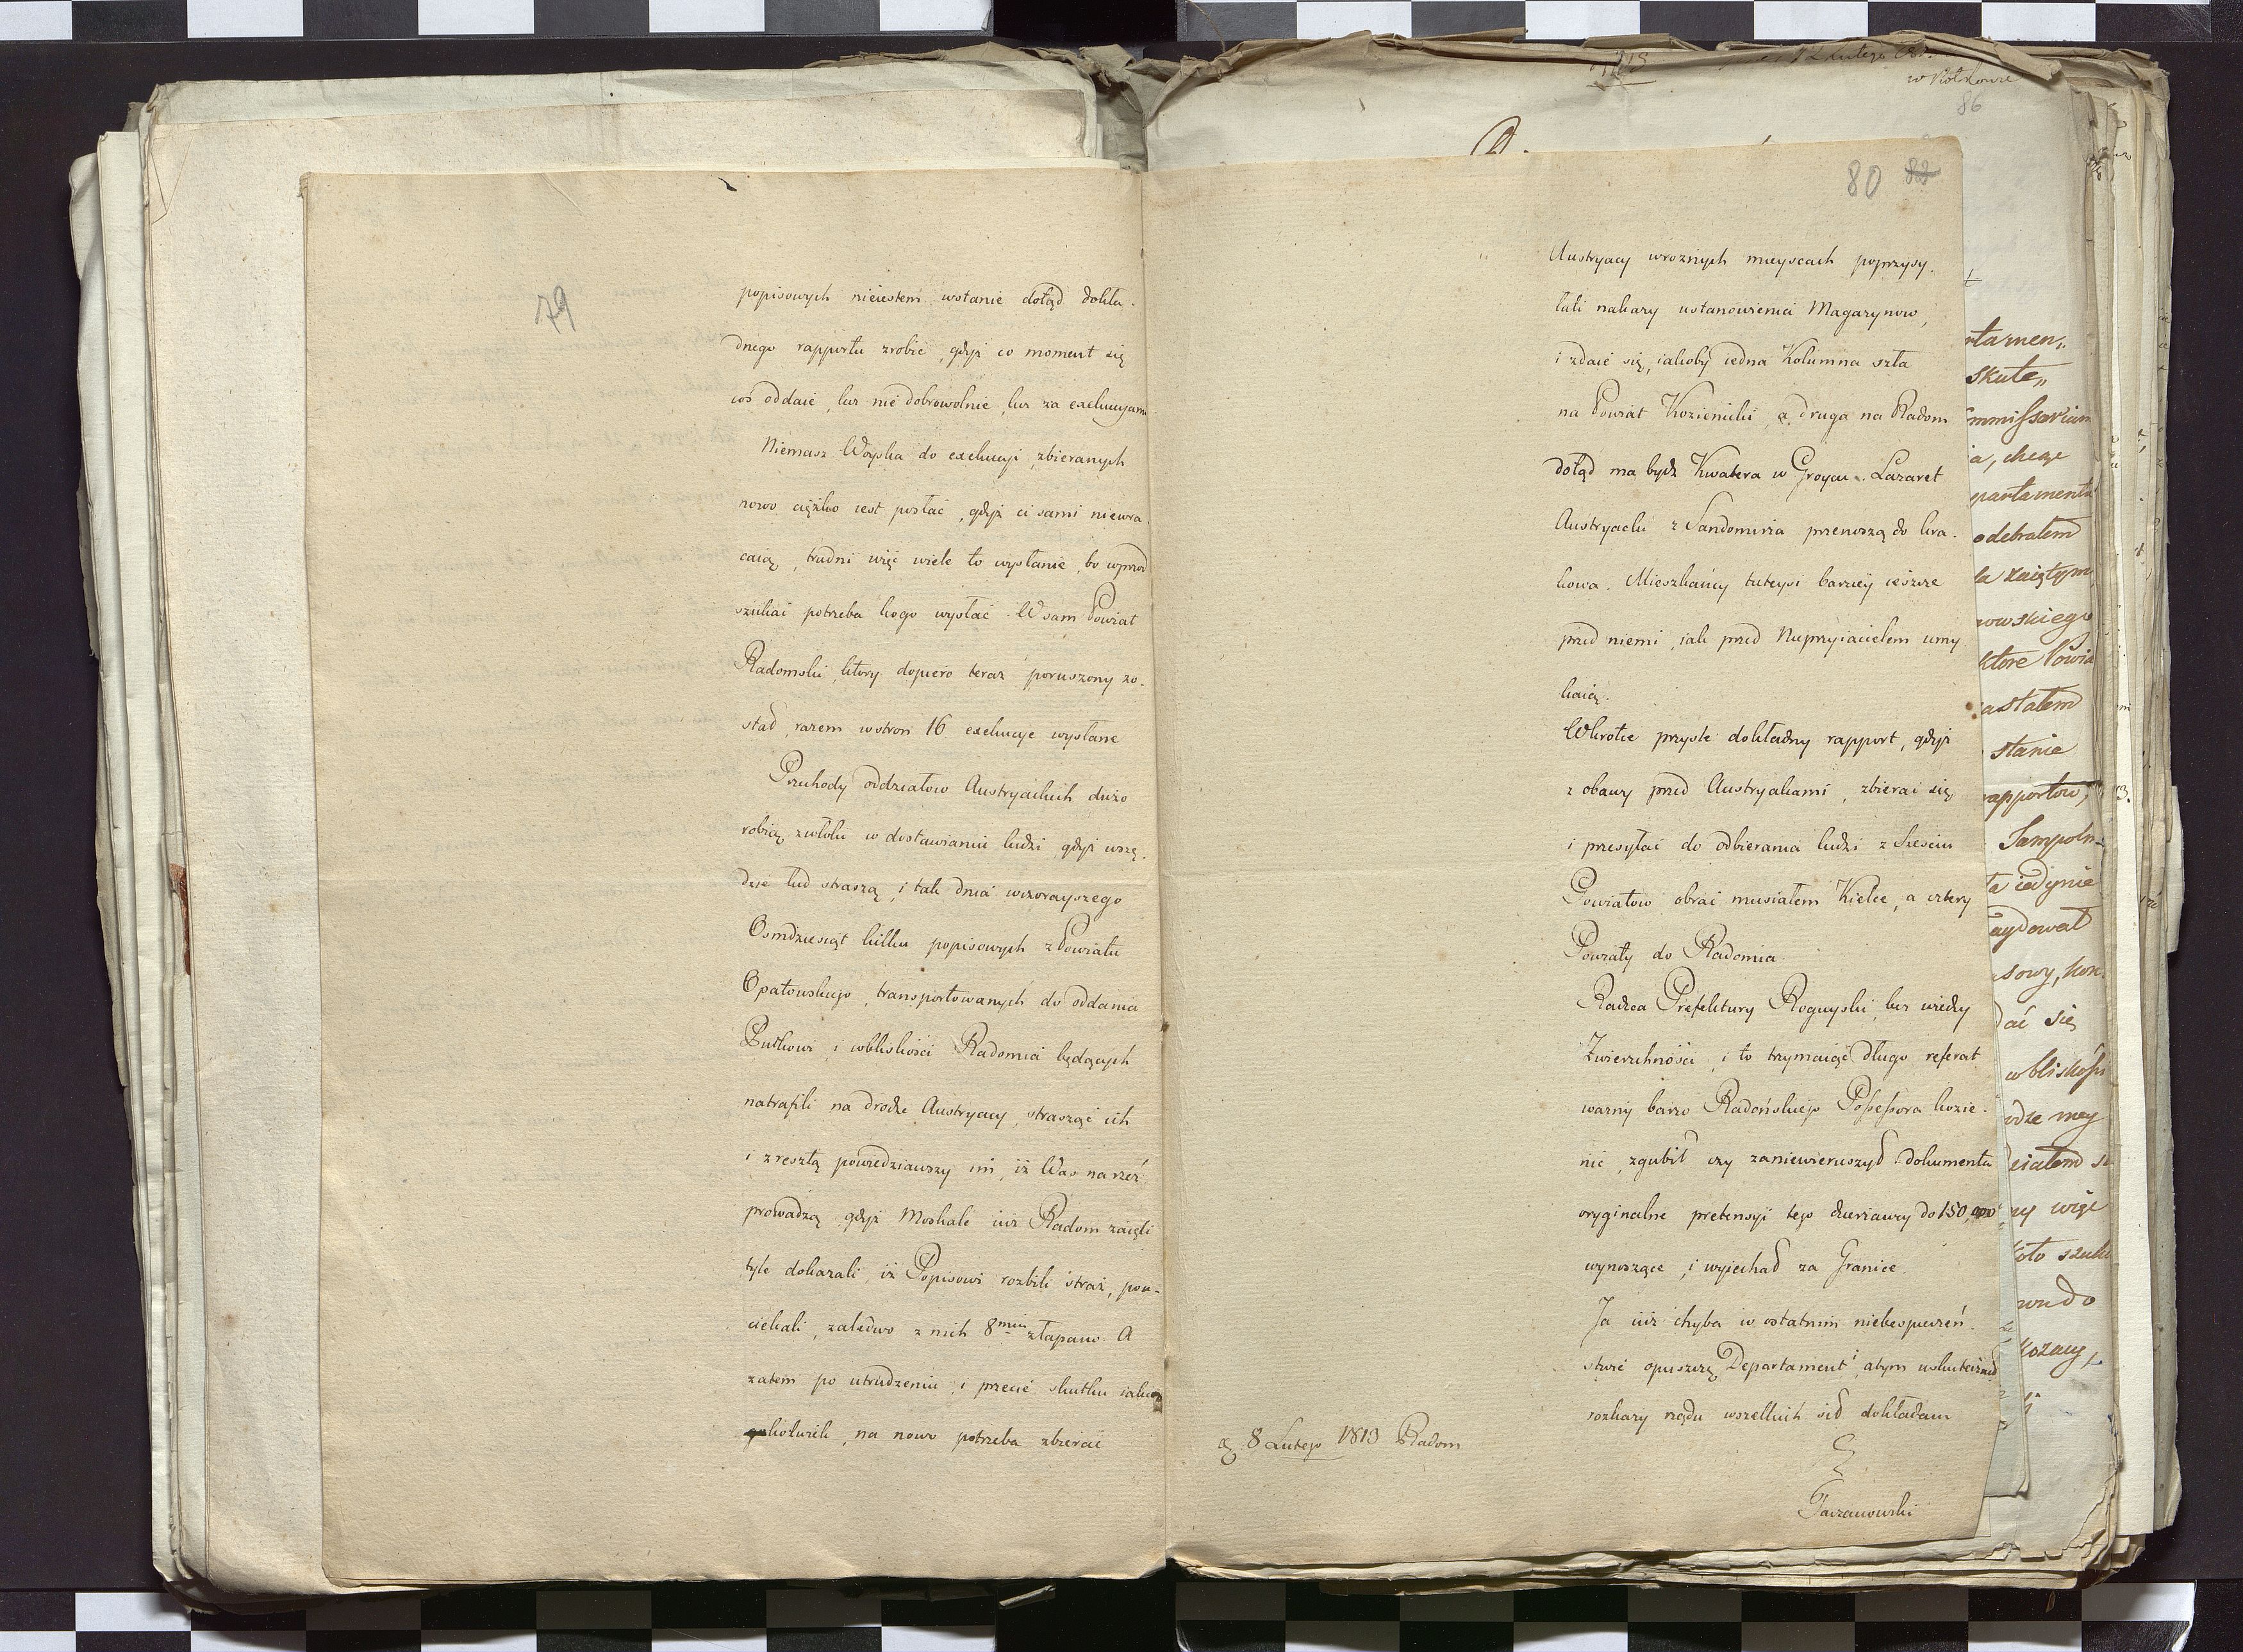 79
popisowych nieiestem wstanie dotąd dokła-
dnego rapportu zrobić, gdyż co moment się
coś oddaie, lecz nie dobrowolnie, lecz za exekucyiami
Niemasz Woyska do exekucyi, zbieranych
nowo ciężko iest posłać, gdyż ci sami niewra-
caią, trudni więc wiele to wysłanie, bo wprzod
szukać potrzeba kogo wysłać. W sam Powiat
Radomski, ktory dopiero teraz poruszony zo-
stał, razem wstron 16 exekucye wysłane
Przechody oddziałow Austryackich dużo
robią zwłoki w dostawianiu ludzi, gdyż wszę-
dzie lud straszą, i tak dnia wczorayszego
Osmdziesiąt kilku popisowych z Powiatu
Opatowskiego, transportowanych do oddania
Pułkowi, i wbliskości Radomia będących
natrafili na drodze Austryacy, strasząc ich
i zresztą powiedziawszy im, iż Was na rzeź
prowadzą gdyż Moskale iuż Radom zaięli
tyle dokazali, iż Popisowi rozbili straż, pou-
ciekali, zaledwo z nich 8miu złapano. A
zatem po utrudzeniu, i przecie skutku
na nowo potrzeba zbierać
80 82
Austryacy wroznych mieyscach poprzysy-
łali nakazy ustanowienia Magazynow,
i zdaie się, iakoby iedna Kolumna szła
na Powiat Kozienicki, a druga na Radom
dotąd ma bydz Kwatera w Groycu. Lazaret
Austryacki z Sandomirza przenoszą do Kra-
kowa. Mieszkańcy tuteysi barziey ieszcze
przed niemi, iak przed Nieprzyiacielem umy
kaią.
Wkrotce przyszlę dokładny rapport, gdyż
z obawy przed Austryakami, zbierać się
i przesyłać do odbierania ludzi z Sześciu
Powiatow obrać musiałem Kielce, a cztery
Powiaty do Radomia.
Radzca Prefektury Roguyski, bez wiedzy
Zwierzchności, i to trzymaiąc długo referat
wazny barzo Radońskiego Possessora Kozie-
nic, zgubił czy zaniewieruszył dokumenta
oryginalne pretensyi tego dzierżawcy do 150,000
wynoszące, i wyiechał za Granice.
Ja iuż chyba w ostatnim niebespieczeń-
stwie opuszczę Departament, abym uskutecznił
rozkazy rządu wszelkich sił dokładam
Taczanowski
8 Lutego 1813 Radom
12 Lutego
86
rtamen,,
skute,,
ommissarium
ia, chcąc
partamentu
odebrałem
zaiętym
rowskiego
ktore
zastałem
stanie
rapportow,
iedynie
dać się
wbliskości
więc